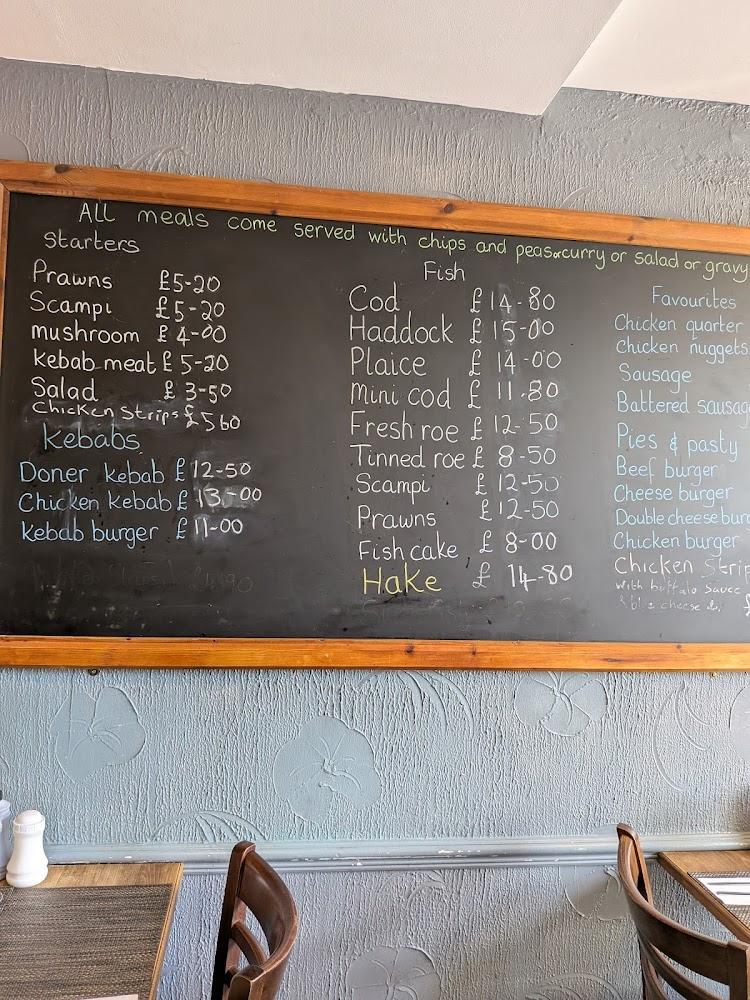 All meals come served with chips and peas or curry or salad or gravy
starters
Prawns £5-20
Scampi £5-20
mushroom £4-00
kebab meat £5-20
Salad £3-50
Chicken Strips £5 60
Kebabs
Doner kebab £12-50
Chicken kebab £13-00
kebab burger £11-00
Fish
Cod £14-80
Haddock £15-00
Plaice £14-00
mini cod £11.80
Fresh roe £12-50
Tinned roe £8-50
Scampi £12-50
Prawns £12-50
Fish cake £8-00
Hake £14-80
Favourites
Chicken quarter
Chicken nuggets
Sausage
Battered sausag
Pies & pasty
Beef burger
Cheese burger
Double cheese bur
Chicken burger
Chicken Strip
with buffalo sauce
cheese